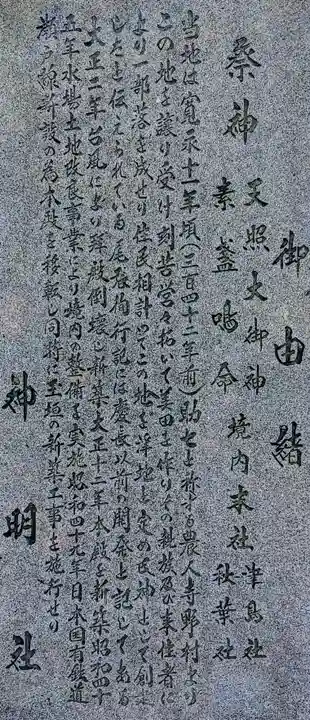 御由緒
祭神 天照大御神 素盞嗚命 境内末社 津島社 秋葉社
当地は寛永十一年頃(三百四十二年前)助七と称する農人寺野村より
この地を譲り受け刻苦営々拓いて美田を作りその親族及び来住者に
より一部落を成せり住民相計ってこの地を浄地と定め氏神として創立
したと伝えられている尾張徇行記には慶長以前の開発と記してある
大正二年台風により拝殿倒壊し新築大正十二年本殿を新築昭和四十
五年水場土地改良事業により境内の整備を実施昭和四十九年日本国有鉄道
南方線許設の為本殿を移転し同時に玉垣の新築工事を施行せり
神明社